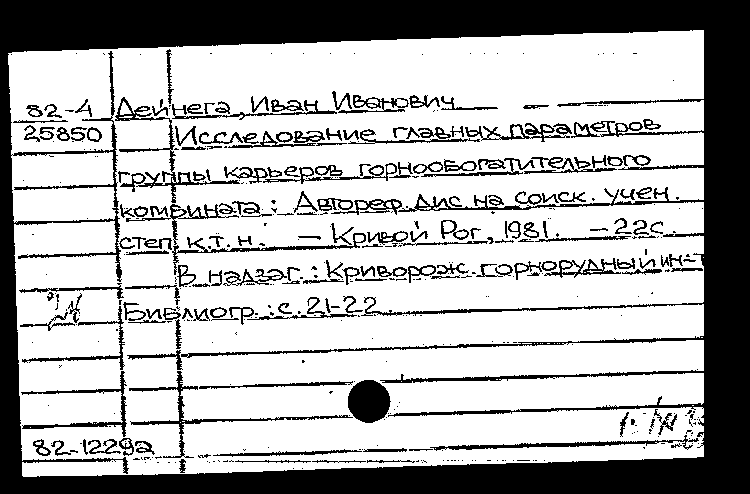 82-4 Дейнега, Иван Иванович
25850 Исследование главных параметров
группы карьеров горнообогатительного
комбината: Автореф. дис. на соиск. учен.
степ. к.т.н. — Кривой Рог, 1981. — 22с.
В надзаг.: Криворож. горнорудный ин-т
Библиогр.: с. 21-22.
82-12292